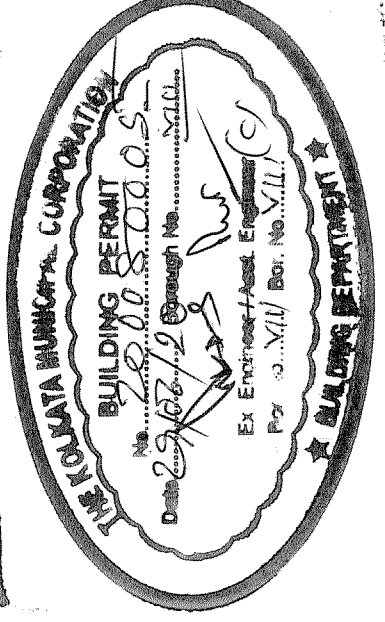 THE KOLKATA MUNICIPAL CORPORATION
BUILDING PERMIT
No. 2020080005
Date 29/07/20 Borough No. VIII
Ex Engineer/Asst. Engineer (C)
Bor. No. VIII
★ BUILDING DEPARTMENT ★